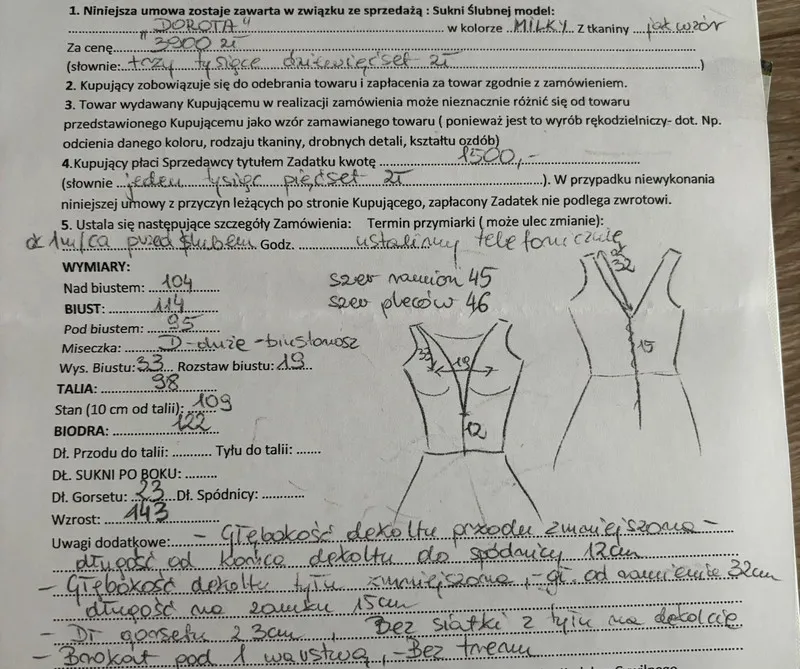 1. Niniejsza umowa zostaje zawarta w związku ze sprzedażą : Sukni Ślubnej model:
"DOROTA" w kolorze MILKY Z tkaniny jak wzór
Za cenę 3900 zł
(słownie: trzy tysiące dziewięćset zł)
2. Kupujący zobowiązuje się do odebrania towaru i zapłacenia za towar zgodnie z zamówieniem.
3. Towar wydawany Kupującemu w realizacji zamówienia może nieznacznie różnić się od towaru
przedstawionego Kupującemu jako wzór zamawianego towaru ( ponieważ jest to wyrób rękodzielniczy- dot. Np.
odcienia danego koloru, rodzaju tkaniny, drobnych detali, kształtu ozdób)
4.Kupujący płaci Sprzedawcy tytułem Zadatku kwotę 1500,-
(słownie jeden tysiąc pięćset zł). W przypadku niewykonania
niniejszej umowy z przyczyn leżących po stronie Kupującego, zapłacony Zadatek nie podlega zwrotowi.
5. Ustala się następujące szczegóły Zamówienia: Termin przymiarki ( może ulec zmianie):
1 m/ca przed ślubem Godz. ustalimy telefonicznie
WYMIARY:
Nad biustem: 104
szer ramion 45
BIUST: 114
szer pleców 46
Pod biustem: 95
Miseczka: D-duże -biustonosz
Wys. Biustu: 33 Rozstaw biustu: 19
TALIA: 98
Stan (10 cm od talii): 109
BIODRA: 122
Dł. Przodu do talii: Tyłu do talii:
DŁ. SUKNI PO BOKU:
Dł. Gorsetu: 23 Dł. Spódnicy:
Wzrost: 143
33 19
12
32
15
Uwagi dodatkowe: - Głębokość dekoltu przodu zmniejszona -
długość od końca dekoltu do spódnicy 12cm
- Głębokość dekoltu tyłu zmniejszona, - gł. od ramienia 32cm
długość na zamku 15cm
- Dł gorsetu 23cm, Bez siatki z tyłu na dekolcie
- Brokat pod 1 warstwą, - Bez trenu